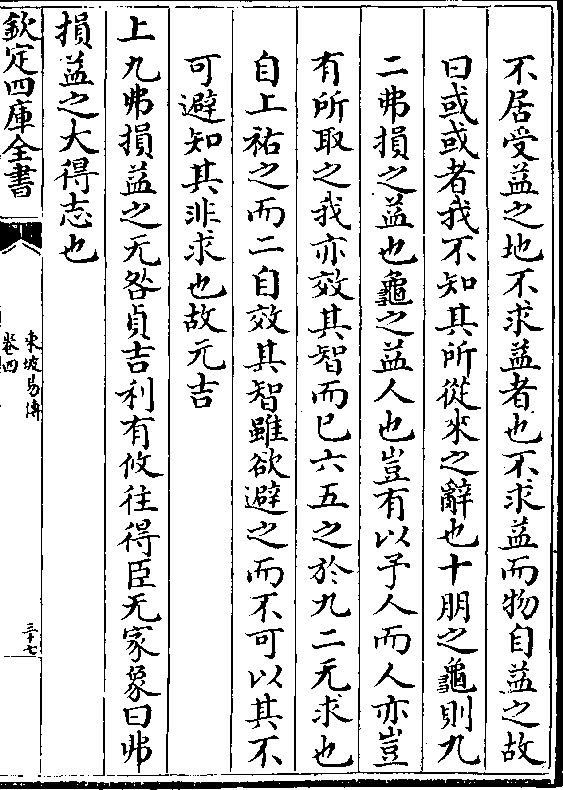 不居受益之地不求益者也不求益而物自益之故
曰或或者我不知其所從來之辭也十朋之龜則九
二弗損之益也龜之益人也豈有以予人而人亦豈
有所取之我亦效其智而已六五之於九二无求也
自上祐之而二自效其智雖欲避之而不可以其不
可避知其非求也故元吉
上九弗損益之无咎貞吉利有攸往得臣无家象曰弗
損益之大得志也
欽定四庫全書
東坡易傳
卷四
三十七